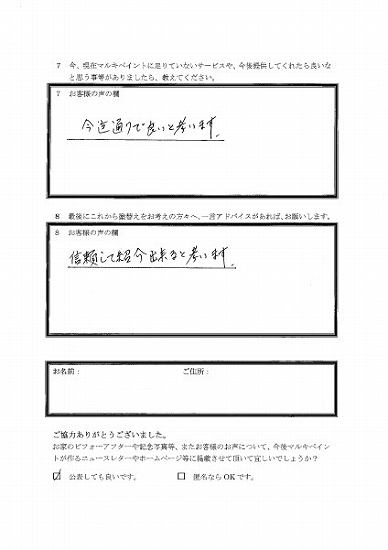 7 今、現在マルキペイントに足りていないサービスや、今後提供してくれたら良いな
と思う事等がありましたら、教えてください。
7 お客様の声の欄
今迄通りで良いと考います。
8 最後にこれから塗替えをお考えの方々へ、一言アドバイスがあれば、お願いします。
8 お客様の声の欄
信頼して紹介出来ると考います。
お名前： ご住所：
ご協力ありがとうございました。
お家のビフォーアフターや記念写真等、またお客様のお声について、今後マルキペイン
トが作るニュースレターやホームページ等に掲載させて頂いて宜しいでしょうか？
☑ 公表しても良いです。 □ 匿名ならOKです。